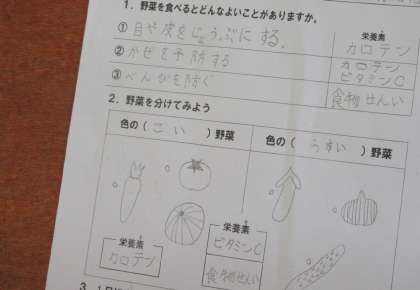 1．野菜を食べるとどんなよいことがありますか。
栄養素
①目や皮をじょうぶにする。
カロテン
②かぜを予防する
カロテン
ビタミンC
③べんぴを防ぐ
食物せんい
2．野菜を分けてみよう
色の（こい）野菜
色の（うすい）野菜
栄養素
カロテン
栄養素
ビタミンC
食物せんい